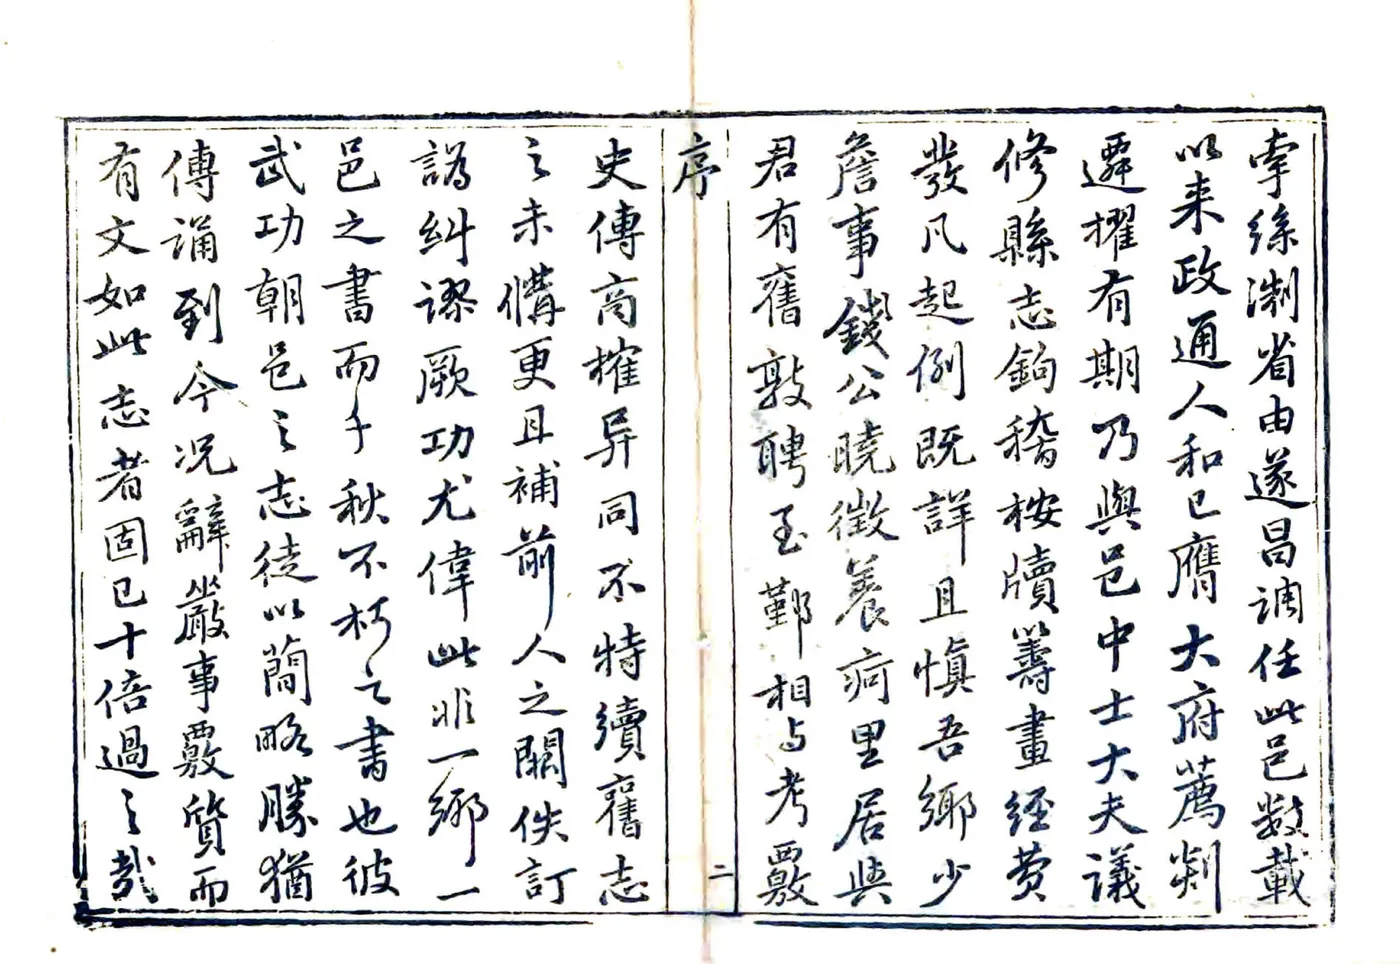 宰綵淛省由遂昌調任此邑数載
以来政通人和已膺大府薦剡
遷擢有期乃與邑中士大夫議
修縣志鉤稽按牘籌畫經費
發凡起例既詳且慎吾鄉少
詹事錢公曉徵養疴里居與
君有舊敦聘至鄞相与考覈
序
二
史傳商榷异同不特續舊志
之未備更且補前人之闕佚訂
譌糾謬厥功尤偉此非一鄉一
邑之書而千秋不朽之書也彼
武功朝邑之志徒以簡略勝猶
傳誦到今况辭嚴事覈質而
有文如此志者固已十倍過之哉